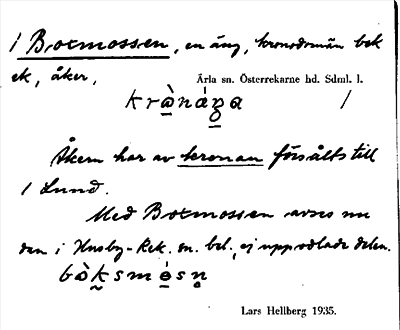 / Botmossen, en äng, kronodomän bek
ek, åker,
Ärla sn. Österrekarne hd. Sdml. l.
krànáŋa /
Åkern har av kronan försålts till
/ Lund.
Med Botmossen avses nu
den i Husby-Rek. sn. bel., ej uppodlade delen.
bòksmósn
Lars Hellberg 1935.